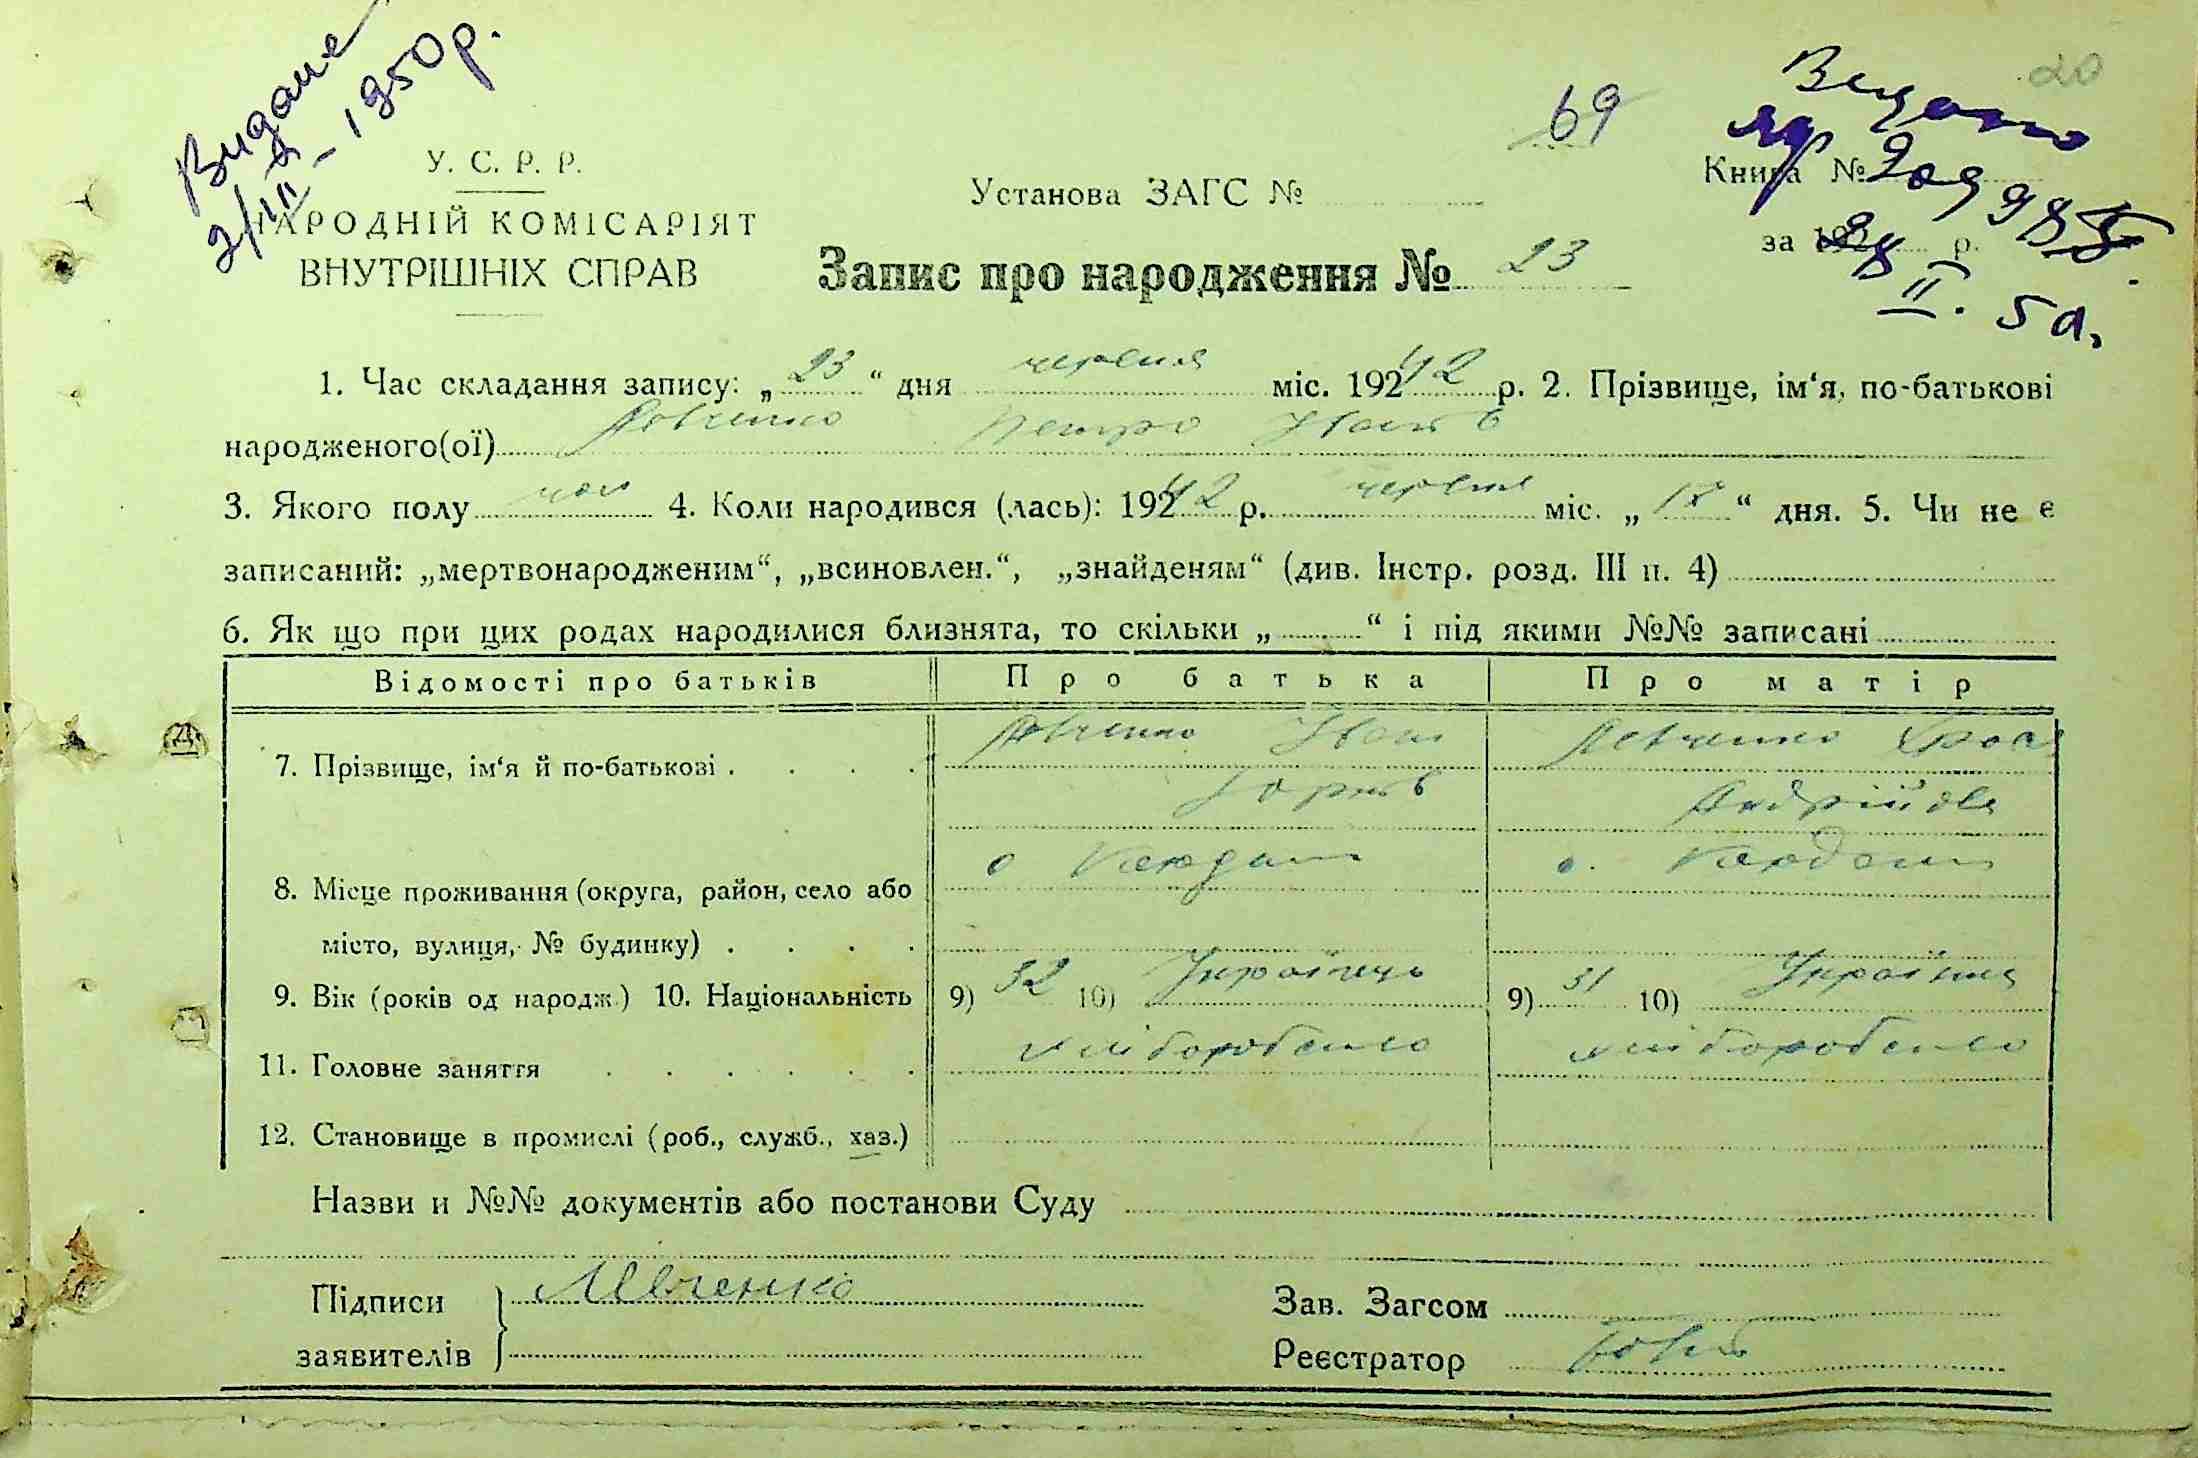 Видане
2/III - 1950 р.
20
69
Видано
У. С. Р. Р.
НАРОДНІЙ КОМІСАРІЯТ
ВНУТРІШНІХ СПРАВ
Установа ЗАГС №
Книга №
за 192 р.
II. 50.
Запис про народження № 23
1. Час складання запису: „ 23 “ дня червня міс. 192 42 р. 2. Прізвище, ім‘я, по-батькові
народженого(ої) Левченко Петро Іванов
3. Якого полу чол 4. Коли народився (лась): 192 42 р. червня міс. „ 12 “ дня. 5. Чи не є
записаний: „мертвонародженим“, „всиновлен.“, „знайденям“ (див. Інстр. розд. III п. 4)
6. Як що при цих родах народилися близнята, то скільки „ “ і під якими №№ записані
Відомості про батьків Про батька Про матір
7. Прізвище, ім‘я й по-батькові . . . . Левченко Іван Левченко
Андрійовна
8. Місце проживання (округа, район, село або
місто, вулиця, № будинку) . . . .
9. Вік (років од народж.) 10. Національність 9) 32 10) Українець 9) 31 10) Українка
11. Головне заняття . . . . . . хліборобство хліборобство
12. Становище в промислі (роб., служб., хаз.)
Назви и №№ документів або постанови Суду
Підписи Левченко
заявителів
Зав. Загсом
Реєстратор